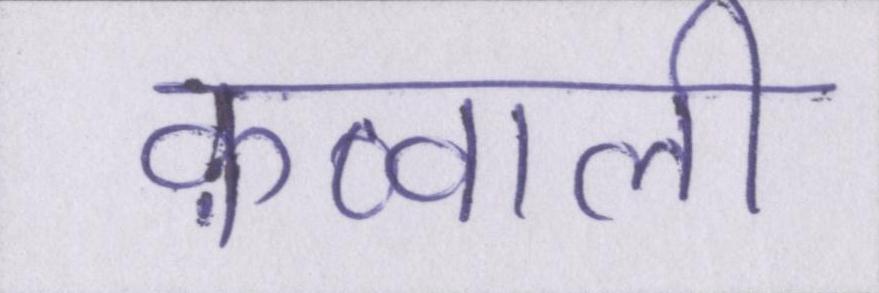 क़व्वाली